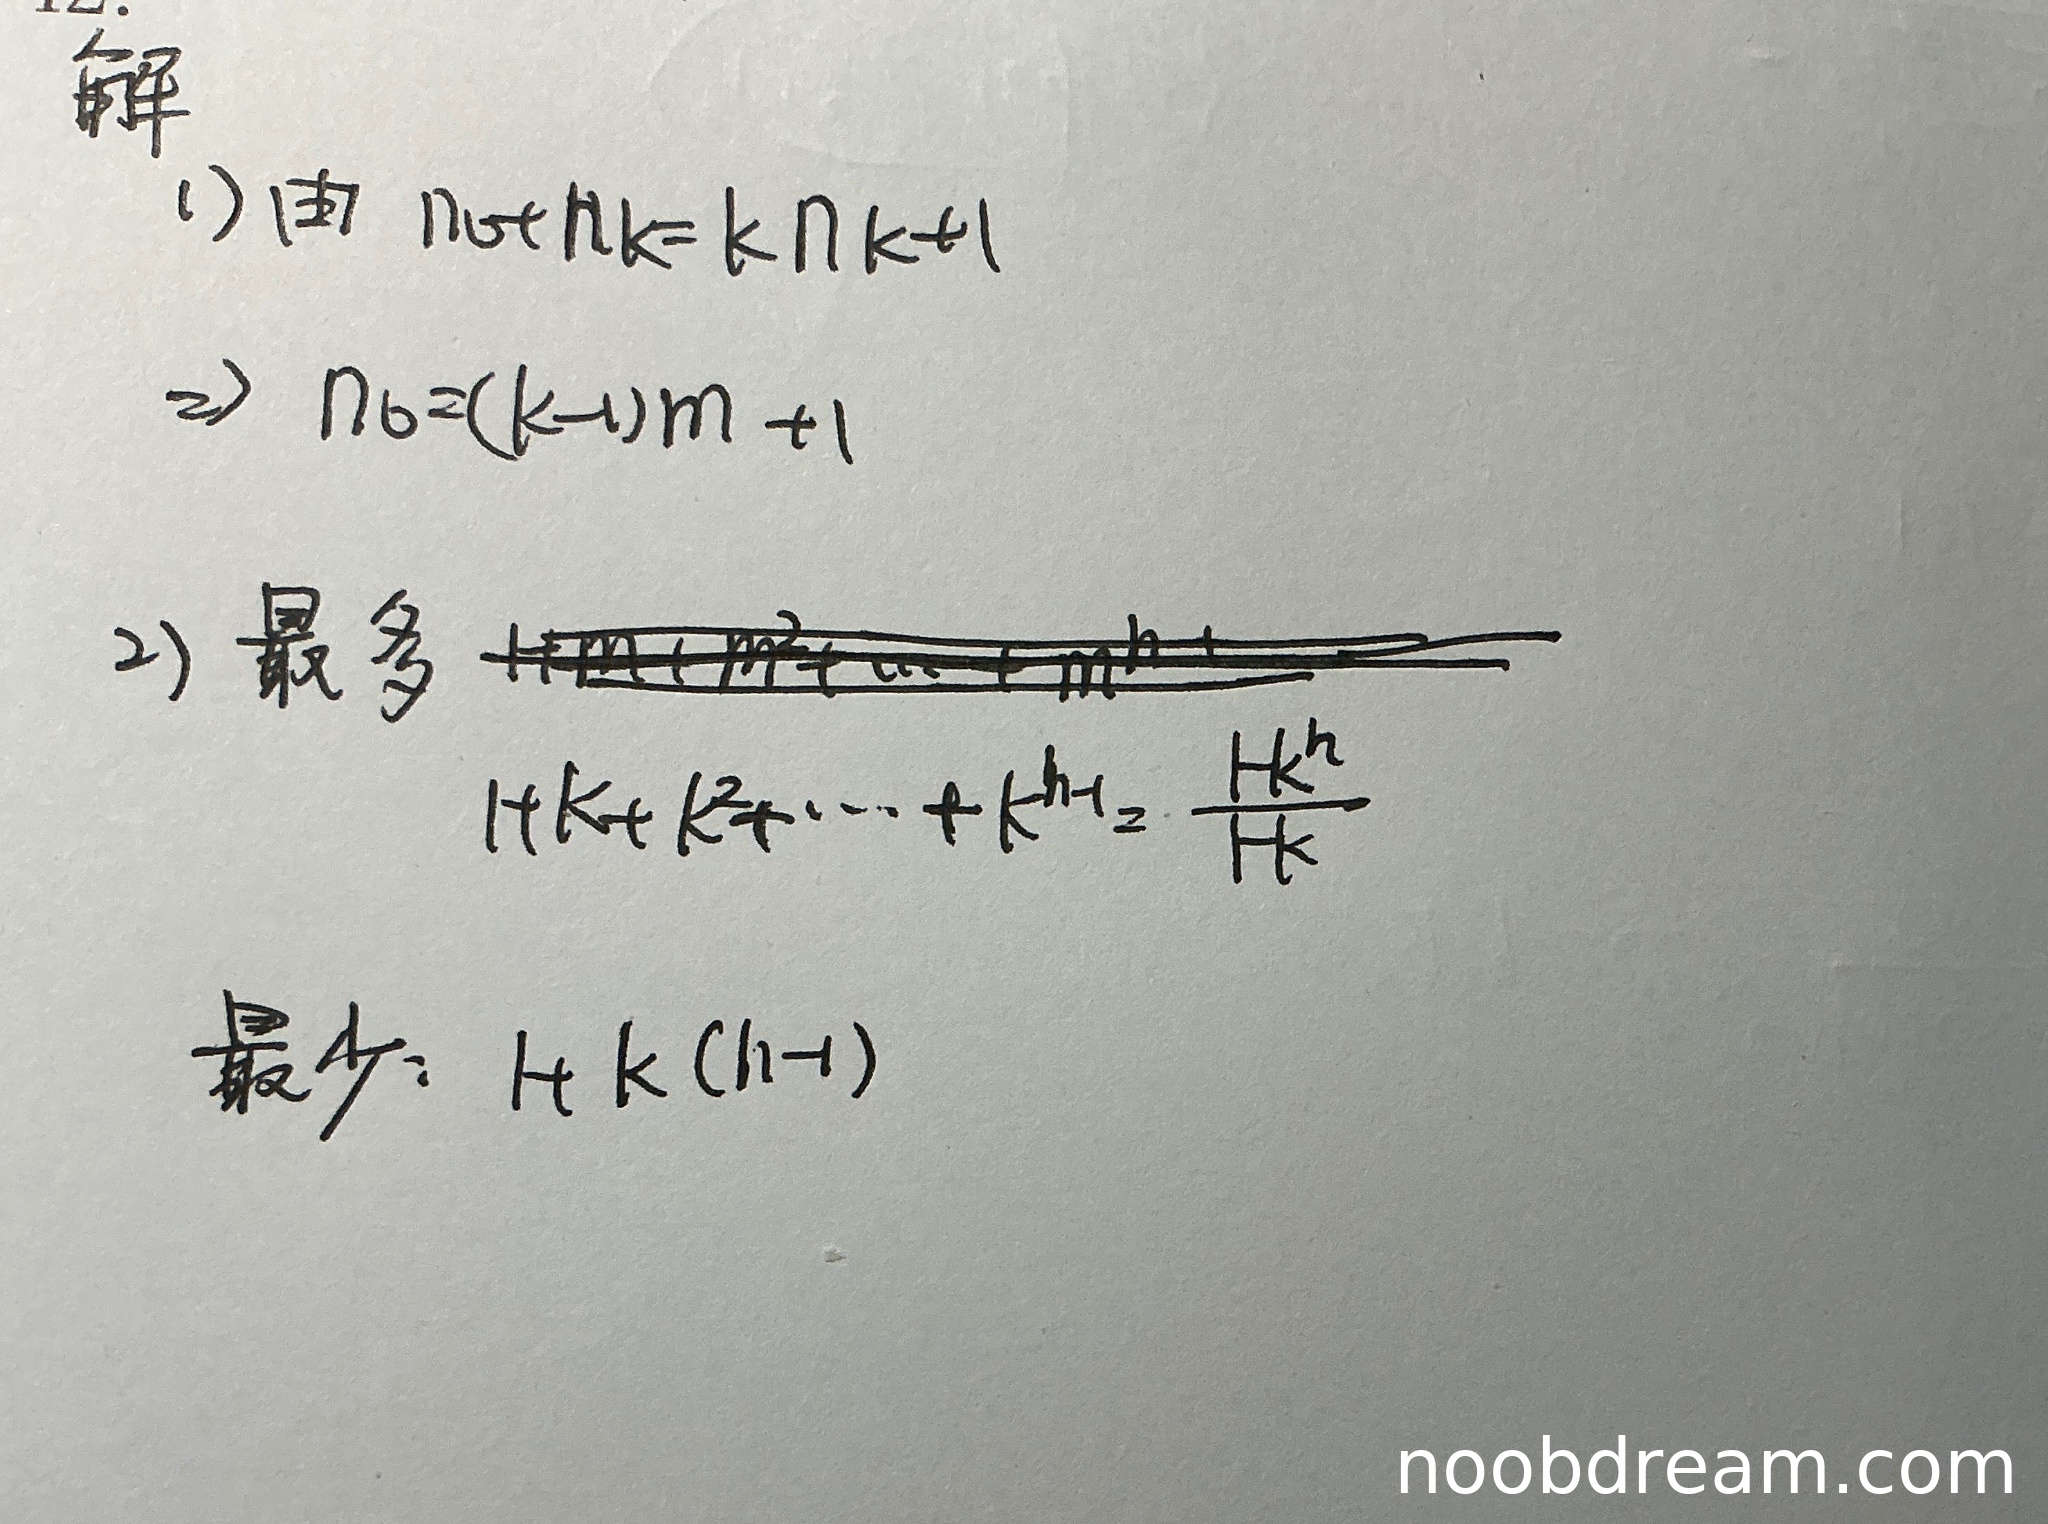 12.
解
1) 由 n₀+nk=knk+1
=> n₀=(k-1)m+1
2) 最多 1+m+m²+...+mʰ⁻¹
1+k+k²+...+kʰ⁻¹= (1-kʰ)/(1-k)
最少: 1+k(h-1)
noobdream.com